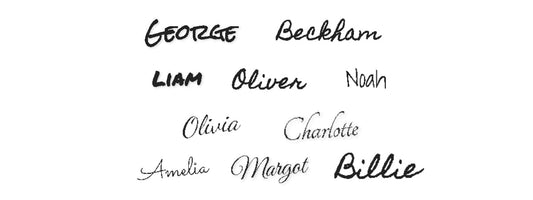 GEORGE Beckham
LIAM Oliver Noah
Olivia Charlotte
Amelia Margot Billie